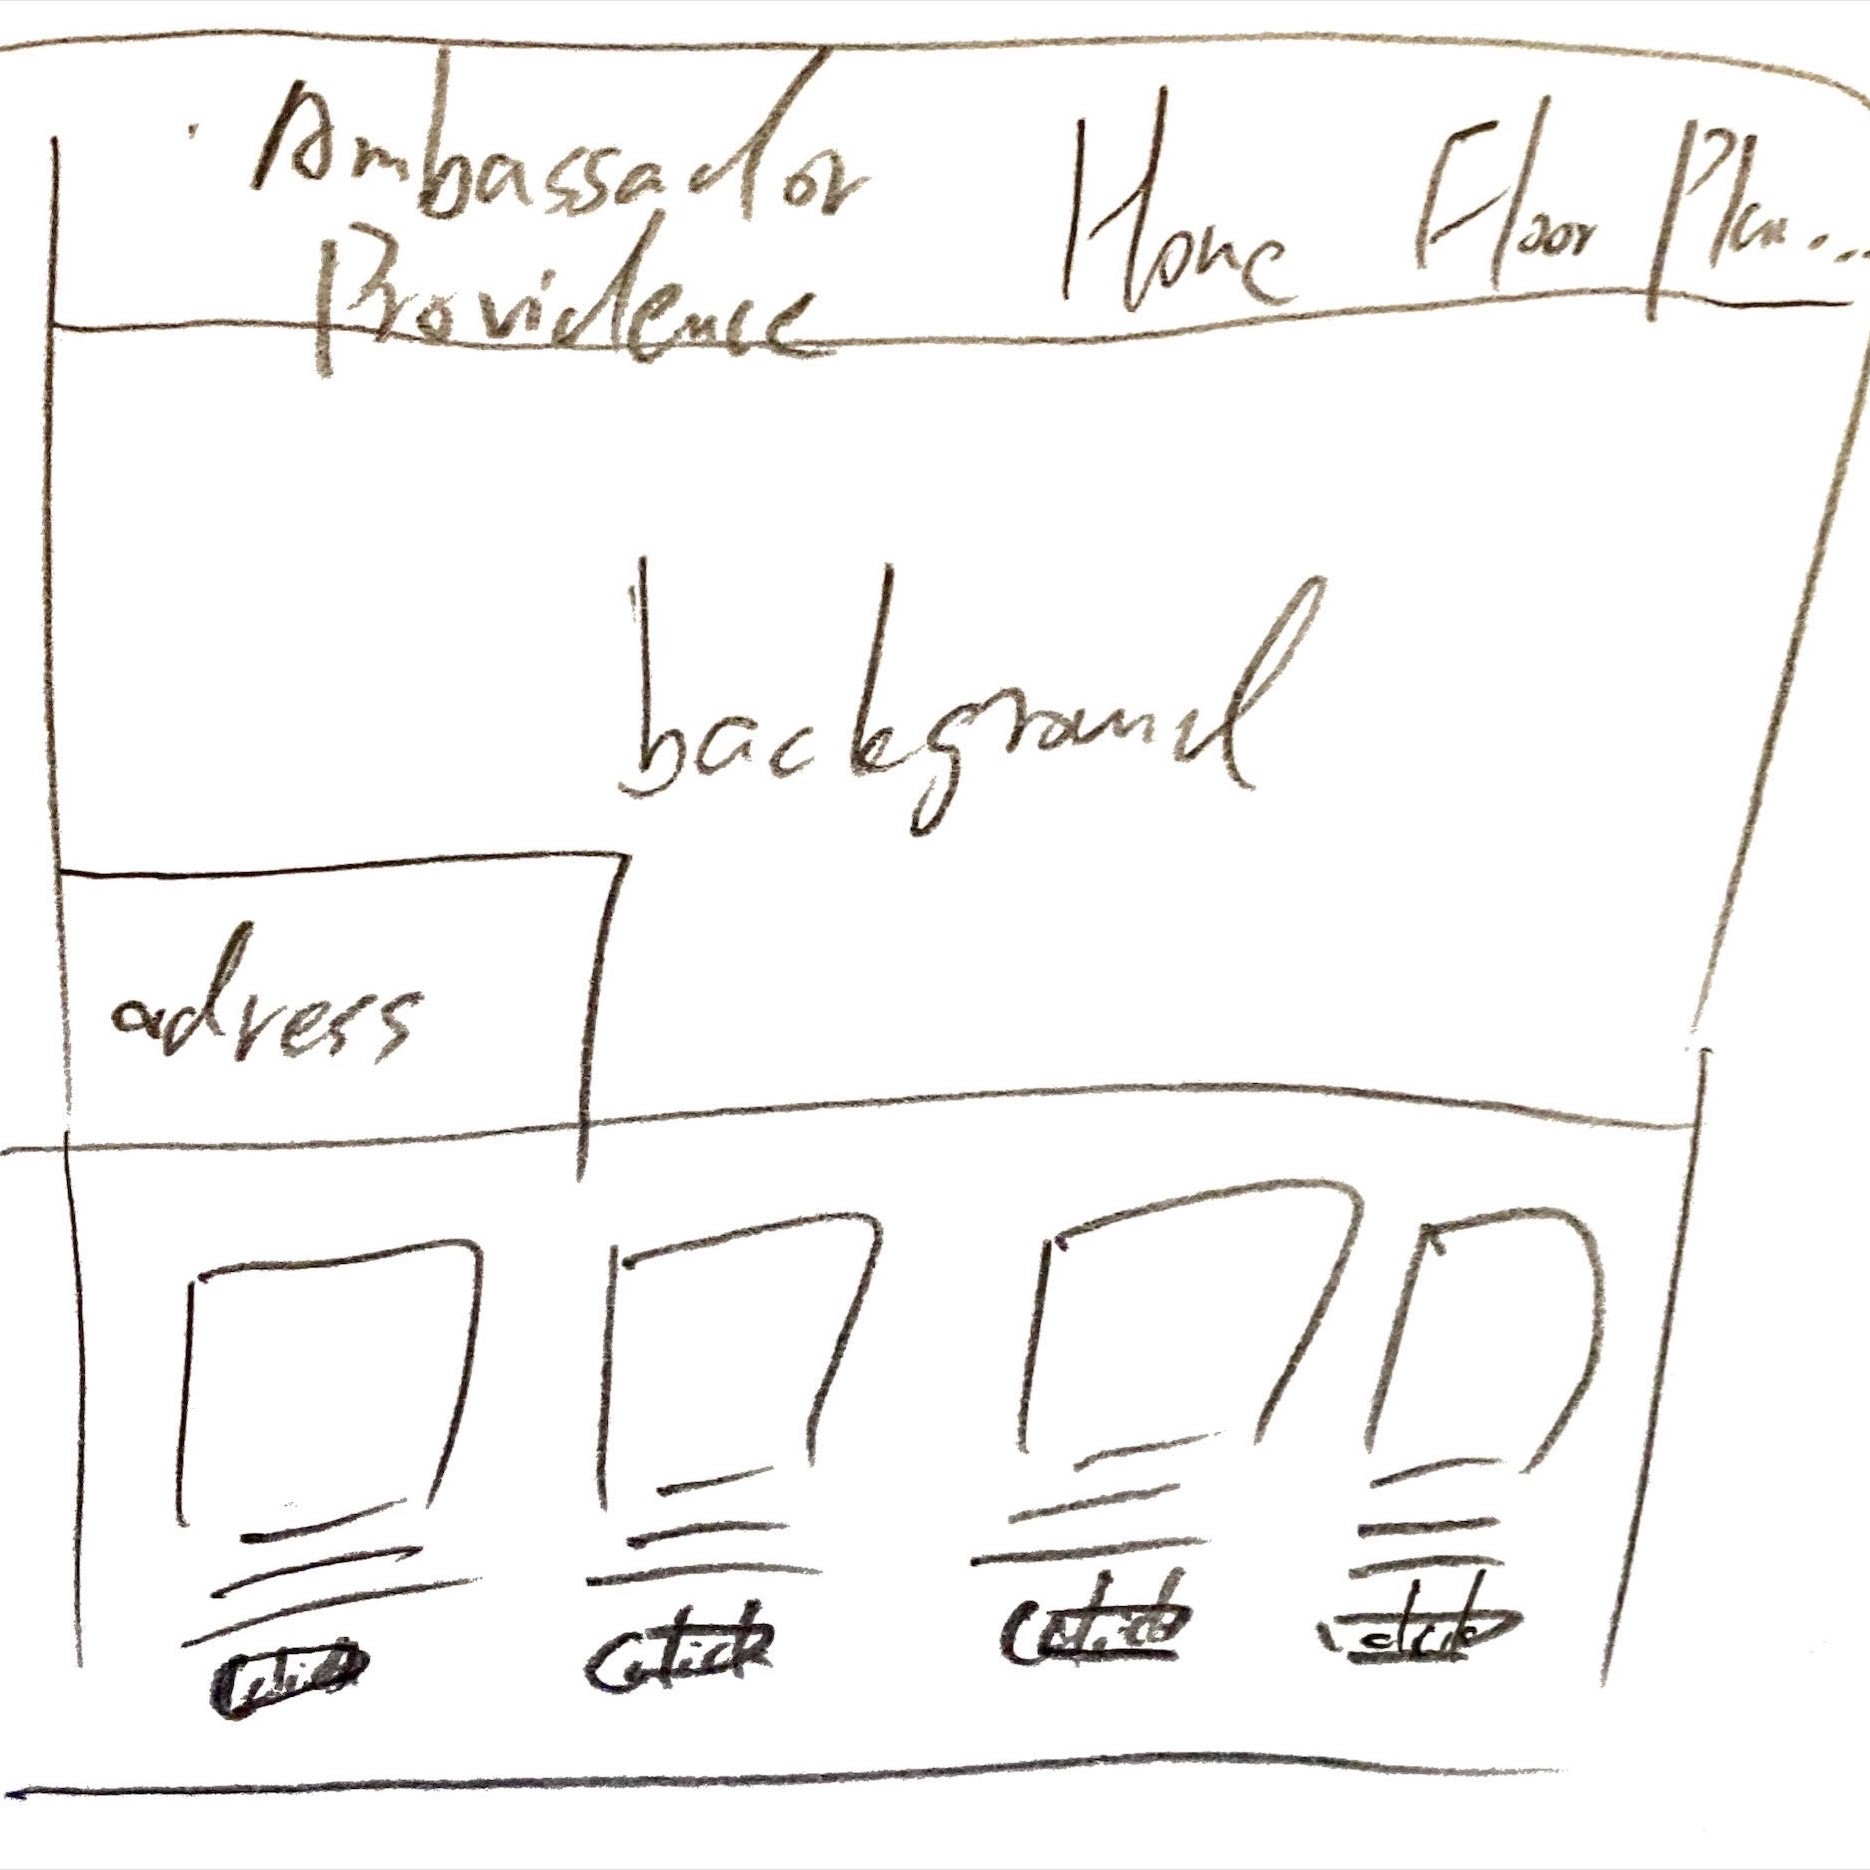 Ambassador
Providence
Home Floor Plan...
background
adress
Click
Click
Click
click